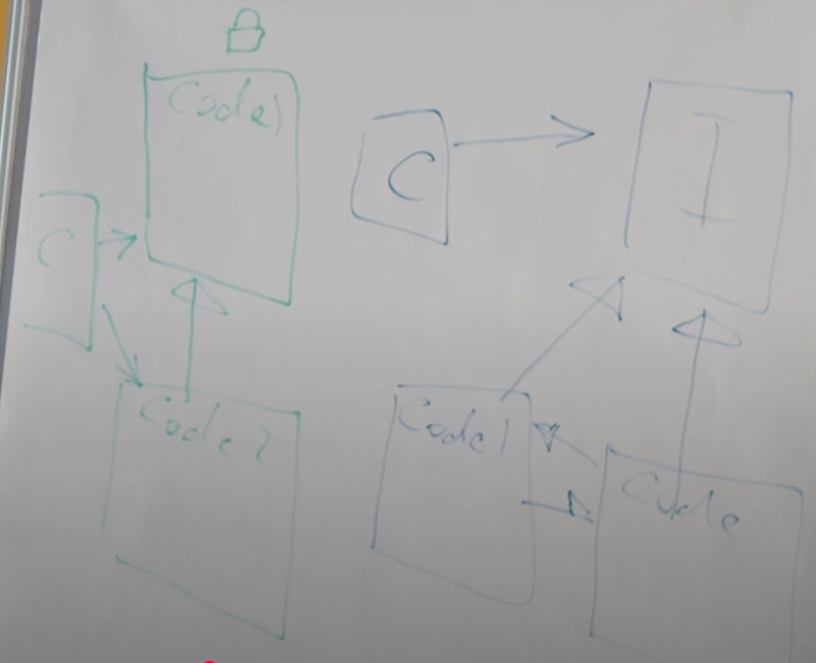 Code1
C
Code2
C
I
Code1
Code